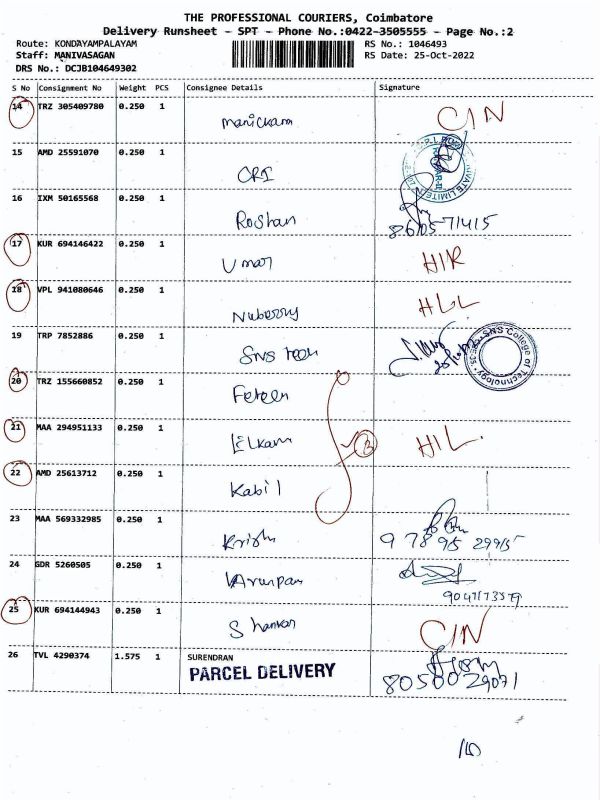 THE PROFESSIONAL COURIERS, Coimbatore
Delivery Runsheet - SPT - Phone No.:0422-3505555 - Page No.:2
Route: KONDAYAMPALAYAM RS No.: 1046493
Staff: MANIVASAGAN RS Date: 25-Oct-2022
DRS No.: DCJB104649302
S No Consignment No Weight PCS Consignee Details Signature
14 TRZ 305409780 0.250 1 Manickam CIN
15 AMD 25591070 0.250 1 CRI
16 IXM 50165568 0.250 1 Roshan
17 KUR 694146422 0.250 1 Umar HIR
18 VPL 941080646 0.250 1 Nuberry HLL
19 TRP 7852886 0.250 1 SNS tech SNS College of Technology
20 TRZ 155660852 0.250 1
21 MAA 294951133 0.250 1 HIL
22 AMD 25613712 0.250 1 Kabil
23 MAA 569332985 0.250 1 Krish
9 78 95 29915
24 GDR 5260505 0.250 1 Arunpan
25 KUR 694144943 0.250 1 Shankar CIN
26 TVL 4290374 1.575 1 SURENDRAN
PARCEL DELIVERY 8050029071